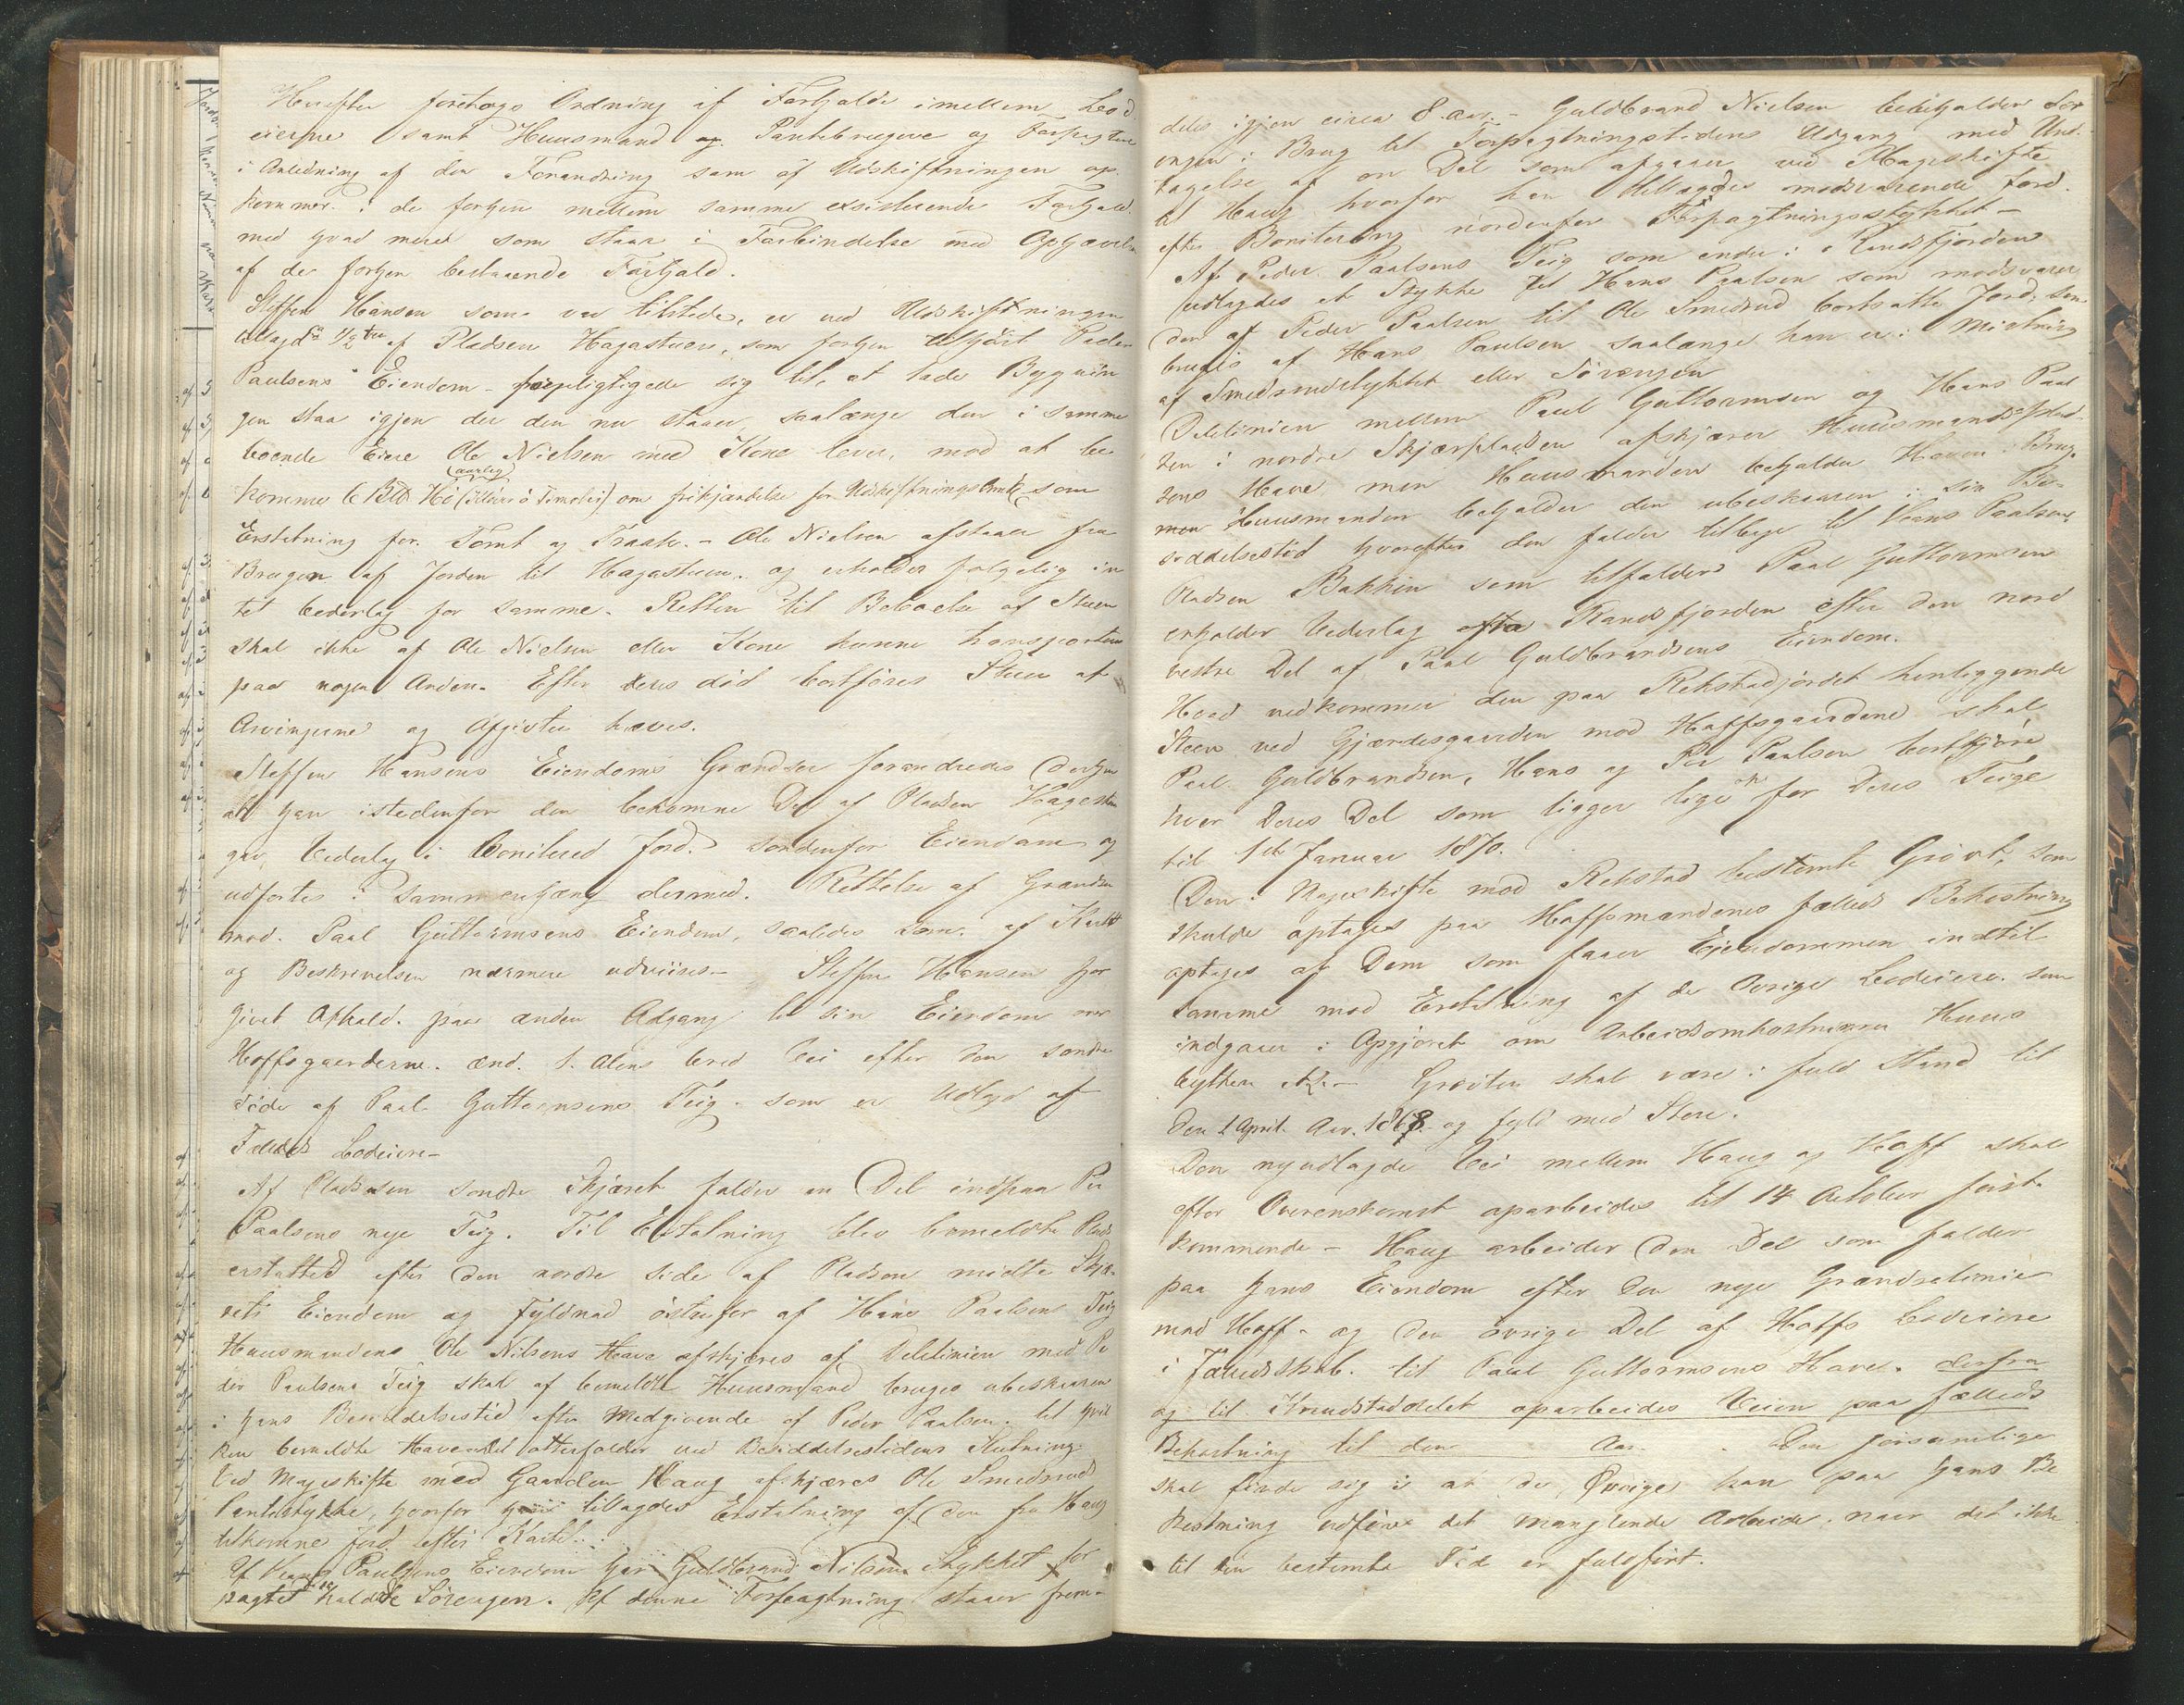 Herefter foretoges Ordning af Forhjolde imellem Lod
eierne samt Huusmænd og Pantebrugere og Forpagtere
i Anledning af den Forandring som af Udskiftningen op
kommer i de forhen mellem samme exsisterende Forhjold
med hvad mere som staar i Forbindelse med Ophævelse
af de forhen bestaaende Forhjold.
Steffen Hansen som var tilstede, er ved Udskiftningen
tillagd 1/2 af Pladsen Hagastuen, som forhen tilhjørt Peder
Paulsens Eiendom - forpligtigede sig til, at lade Bygnin
gen staa igjen der den nu staaer, saalænge den i samme
boende Eiere Ole Nielsen med Kone lever, mod at be
komme 6 Hø (Kløver o Timothei) aarlig om frikjendelse for som
Erstatning for Tomt og Traak. - Ole Nielsen afstaaer fra
Brugen af Jorden til Hagastuen, og erholder følgelig in
tet Vederlag for samme. Retten til Beboelse af Stuen
skal ikke af Ole Nielsen eller Kone kunne transporteres
paa nogen Anden. Efter deres død bortføres Stuen af
Arvingerne og Afgiften hæves.
Steffen Hansens Eiendoms Grændser forandredes derhen
at han istedenfor den bekomne Del af Pladsen Hagastuen
gav, Vederlag i bonitered Jord søndenfor Eiendommen og
udførtes i Sammenhæng dermed. Rettelse af Grændsen
mod Paal Guttormsens Eiendom, saaledes som af Kartet
og Beskrivelsen nærmere udviises - Steffen Hansen har
givet Afkald paa anden Adgang til sin Eiendom over
Hoffsgaarderne end 1. Alens bred Vei efter den søndre
side af Paal Guttormsens Teig som er Udlagd af
Fælleds Lodeiere -
Af Pladsen søndre Skjæret falder en Del indpaa Per
Paalsens nye Teig. Til Erstatning blev bemeldte Plads
erstatted efter den nordre side af Pladsen midtre Skjæ-
rets Eiendom og Fyldnad østenfor af Hans Paalsens Teig
Huusmandens Ole Nilsens Have afskjæres af Delelinien med Pe
der Paulsens Teig skal af bemeldte Huusmand bruges ubeskaaren
i hans Besiddelsestid efter Medgivende af Peder Paalsen, til hvil
ken bemeldte Havedel atterfalder ved Besiddelsestidens Slutning.
Ved Mageskifte med Gaarden Haug afskjæres Ole Smedsruds
Pantestykke, hvorfor han tillagdes Erstatning af den fra Haug
tilkomne Jord efter Kartet.
Af Hans Paulsens Eiendom har Guldbrand Nilsen Stykket for
pagtet kaldede Sørengen. Af denne Forpagtning staaer frem-
deles igjen circa 8 aar. - Guldbrand Nielsen beholder Sør
engen i Brug til Forpagtningstidens Udgang med Und-
tagelse af en Del som afgaaer ved Mageskifte
til Haug hvorfor han tillagdes modsvarende Jord
efter Bonitering nordenfor Forpagtningsstykket -
Af Peder Paalsens Teig som ender i Randsfjorden
udlagdes et Stykke til Hans Paalsen som modsvarer
den af Peder Paalsen til Ole Smedsrud bortsatte Jord, som
bruges af Hans Paulsen saalænge han er i Mistning
af Smedsrudstykket eller Sørengen
Delelinien mellem Paul Guttormsen og Hans Paal
sen i nordre Skjærpladsen afskjærer Huusmandspladsens
Have men Huusmanden beholder Haven i Brug
men Huusmanden beholder den ubeskaaren i sin Be-
siddelsestid hvorefter den falder tilbage til Hans Paalsen.
Pladsen Bakken som tilfalder Paal Guttormsen
erholder Vederlag fra Randsfjorden efter den nord
vestre Del af Paal Guldbrandsens Eiendom.
Hvad vedkommer den paa Rekstadjordet henliggende
Steen ved Gjærdesgaarden mod Hoffsgaardene skal
Paal Guldbrandsen, Hans og Per Paalsen bortkjøre
hver Deres Del som ligger lige for Deres Teige
til 1ste Januar 1870.
Den i Mageskifte mod Rekstad bestemte Grøvt, som
skulde optages paa Hoffsmændenes fælleds Bekostning
optages af Dem som faaer Eiendommen indtil
samme mod Erstatning af de øvrige Lodeiere som
indgaaer i Opgjøret om Arbeidsomkostninger Huus
bytten &. - Grøvten skal være i fuld Stand til
den 1 April Aar. 1868 og fyld med Stene.
Den nyudlagde Vei mellem Haug og Hoff skal
efter Overenskomst oparbeides til 14 October først-
kommende - Haug arbeider den Del som falder
paa hans Eiendom efter den nye Grændselinie
mod Hoff - og den øvrige Del af Hoffs Lodeiere
i Fælledsskab til Paal Guttormsens Have. derfra
og til oparbeides Veien paa fælleds
Bekostning til den Aar . Den forsømlige
skal finde sig i at de Øvrige kan paa hans Be
kostning udføre det manglende Arbeide, naar det ikke
til den bestemte Tid er fuldført.